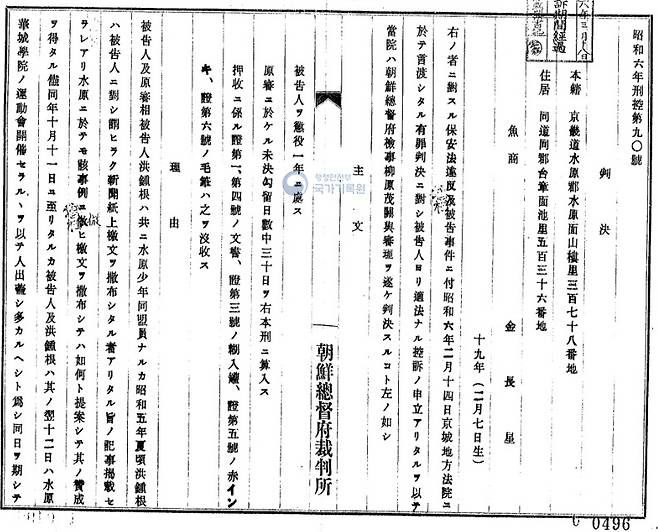 昭和六年刑控第九〇號
判決
本籍 京畿道水原郡水原面山樓里三百七十八番地
住居 同道同郡台章面池里五百三十六番地
魚商 金長星
十九年(二月七日生)
右ノ者ニ對スル保安法違反及被告事件ニ付昭和六年二月十四日京城地方法院ニ
於テ言渡シタル有罪判決ニ對シ被告人ヨリ適法ナル控訴ノ申立アリタルヲ以テ
當院ハ朝鮮總督府檢事柳原茂關與審理ヲ遂ケ判決スルコト左ノ如シ
主文
被告人ヲ懲役一年ニ處ス
原審ニ於ケル未決勾留日數中三十日ヲ右本刑ニ算入ス
押收ニ係ル證第一、第四號ノ文書、證第三號ノ糊入罐、證第五號ノ赤イン
キ、證第六號ノ毛錐ハ之ヲ沒收ス
理由
被告人及原審相被告人洪鍾根ハ共ニ水原少年同盟員ナルカ昭和五年夏頃洪鍾根
ハ被告人ニ對シ謂ヒラク新聞紙上檄文ヲ撒布シタル者アリタル旨ノ記事揭載セ
ラレアリ水原ニ於テモ該事例ニ傚ヒ檄文ヲ撒布シテハ如何ト提案シテ其ノ贊成
ヲ得タル儘同年十月十一日ニ至リタルカ被告人及洪鍾根ハ其ノ翌十二日ハ水原
華城學院ノ運動會開催セラルヽヲ以テ人出甚シ多カルヘシト爲シ同日ヲ期シテ
朝鮮總督府裁判所
행정안전부
국가기록원
0496